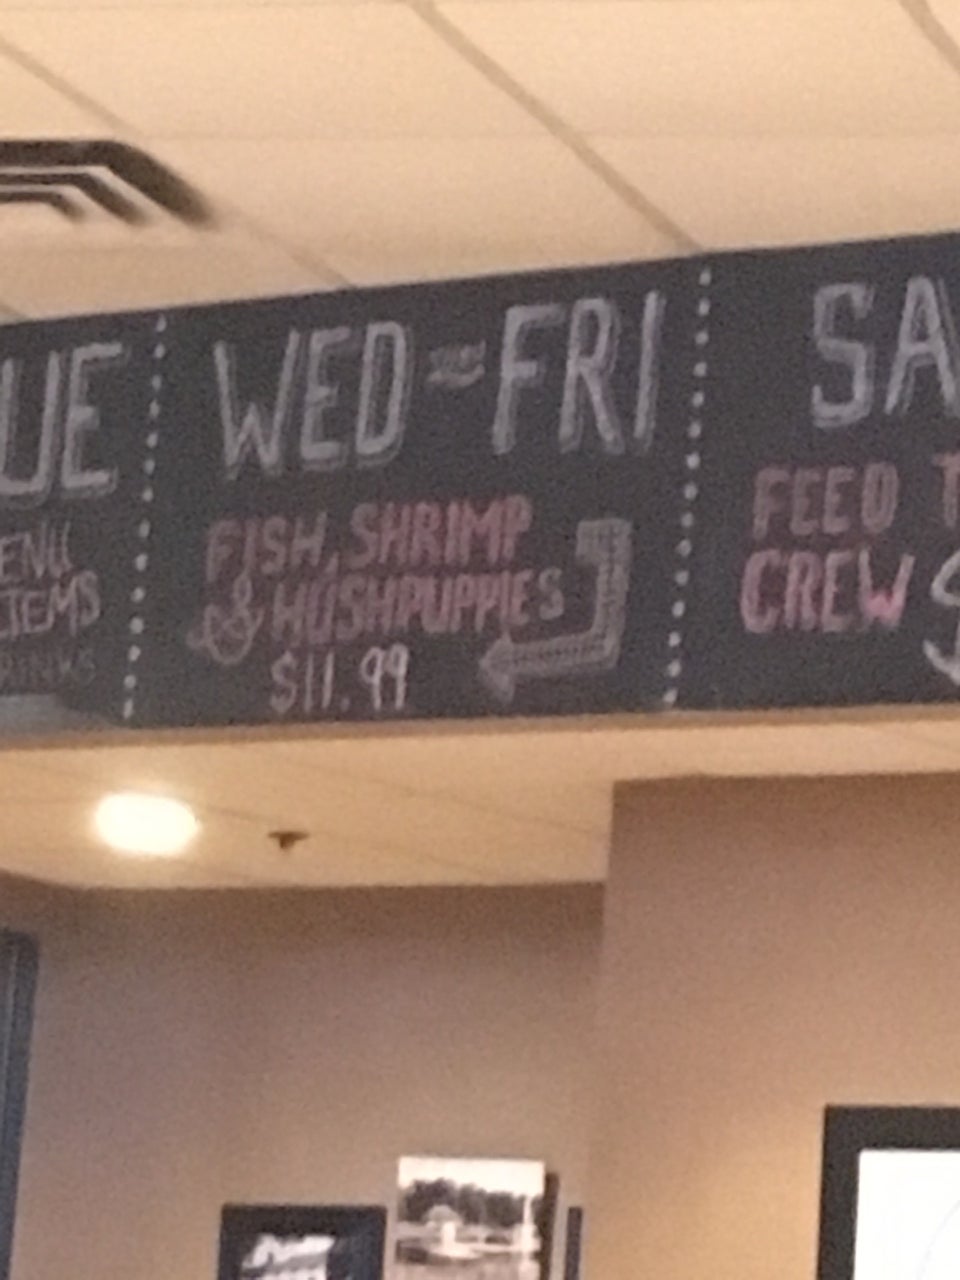 UE
ENU
ITEMS
DRINKS
WED - FRI
FISH, SHRIMP
& HUSHPUPPIES
$11.99
SA
FEED T
CREW $